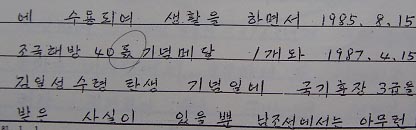 에 수용되여 생활을 하면서 1985. 8. 15
조국해방 40돐 기념메달 1개와 1987. 4. 15
김일성수령 탄생 기념일에 국기훈장 3급을
받은 사실이 있을 뿐 남조선에서는 아무런